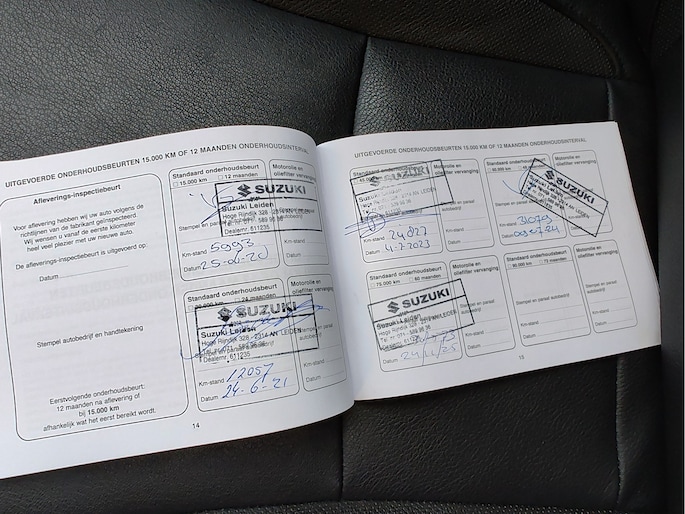 UITGEVOERDE ONDERHOUDSBEURTEN 15.000 KM OF 12 MAANDEN ONDERHOUDSINTERVAL
Afleverings-inspectiebeurt
Voor aflevering hebben wij uw auto volgens de
richtlijnen van de fabrikant geïnspecteerd.
Wij wensen u vanaf de eerste kilometer
heel veel plezier met uw nieuwe auto.
De afleverings-inspectiebeurt is uitgevoerd op:
Datum
Stempel autobedrijf en handtekening
Eerstvolgende onderhoudsbeurt:
12 maanden na aflevering of
bij 15.000 km
afhankelijk wat het eerst bereikt wordt.
Standaard onderhoudsbeurt
15.000 km 12 maanden
SUZUKI
Suzuki Leiden
Hoge Rijndijk 328 - 2314 AN LEIDEN
Dealernr. 611235
Km-stand 5993
Datum 25-06-20
Motorolie en
oliefilter vervanging
Km-stand
Datum
Standaard onderhoudsbeurt
24 maanden
SUZUKI
Suzuki Leiden
Hoge Rijndijk 328 - 2314 AN LEIDEN
Dealernr. 611235
Km-stand 12057
Datum 24-6-21
Km-stand
Datum
14
UITGEVOERDE ONDERHOUDSBEURTEN 15.000 KM OF 12 MAANDEN ONDERHOUDSINTERVAL
Standaard onderhoudsbeurt
SUZUKI
Km-stand 24827
Datum 4-7-2023
Motorolie en
oliefilter vervanging
Km-stand
Datum
Standaard onderhoudsbeurt
60.000 km
SUZUKI
Km-stand 31079
Datum
Motorolie en
oliefilter vervanging
Standaard onderhoudsbeurt
75.000 km 60 maanden
SUZUKI
Suzuki Leiden
Datum 24/11/25
Motorolie en
oliefilter vervanging
Stempel en paraaf
autobedrijf
Km-stand
Datum
Standaard onderhoudsbeurt
90.000 km 72 maanden
Stempel en paraaf
autobedrijf
Km-stand
Datum
Motorolie en
oliefilter vervanging
Stempel en paraaf
autobedrijf
Km-stand
Datum
15